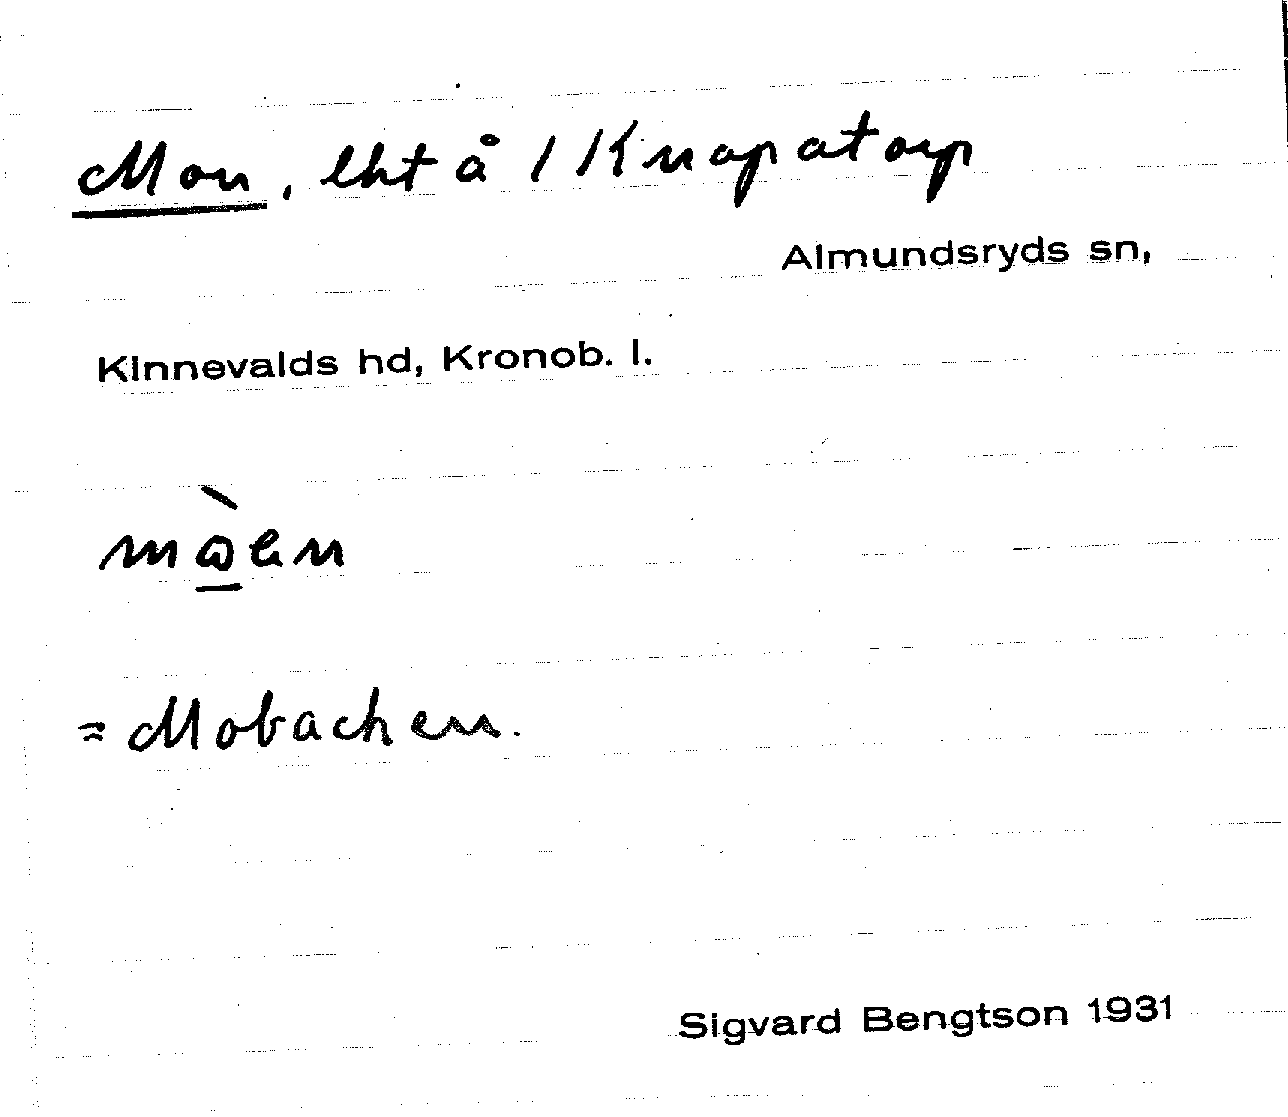 Mon, lht å 1 Knapatorp
Almundsryds sn,
Kinnevalds hd, Kronob. l.
mò̱en
= Mobacken.
Sigvard Bengtson 1931